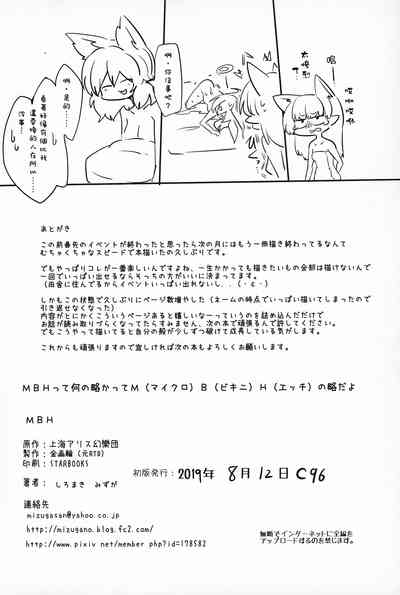 啊，是的……
看著好像有個比我
還要慘的人在所以
沒事……
啊，你沒事吧？
嗚—
太慘烈
了…
あとがき
この前春先のイベントが終わったと思ったら次の月にはもう一冊描き終わってるなんて
むちゃくちゃなスピードで本描いたの久しぶりです。
でもやっぱりコレが一番楽しいんですよね、一生かかっても描きたいもの全部は描けないんで
一回でいっぱい出せるならそっちの方がいいに決まってます。
(田舎に住んでるからイベントいっぱい出れないし．．(・ε・)
しかもこの状態で久しぶりにページ数増やした(ネームの時点でいっぱい描いてしまったので
引き返せなくなった)
内容がとにかくこういうページあると嬉しいなーっていうのを詰め込んだだけで
お話が読み取りづらくなってたらすみません、次の本で頑張るんで許してください。
でもこうやって描いてると自分の殻が少しずつ破けて成長している気がします。
これからも頑張りますので宜しければ次の本もよろしくお願いします。
MBHって何の略かってM(マイクロ)B(ビキニ)H(エッチ)の略だよ
MBH
原作：上海アリス幻樂団
製作：金画輪(元RTB)
印刷：STARBOOKS
初版発行：2019年 8月12日C96
著者： しろまき みずが
連絡先
mizugasan@yahoo.co.jp
http://mizugano.blog.fc2.com/
http://www.pixiv.net/member.php?id=178582
無断でインターネットに全編を
アップロードするのを禁じます。